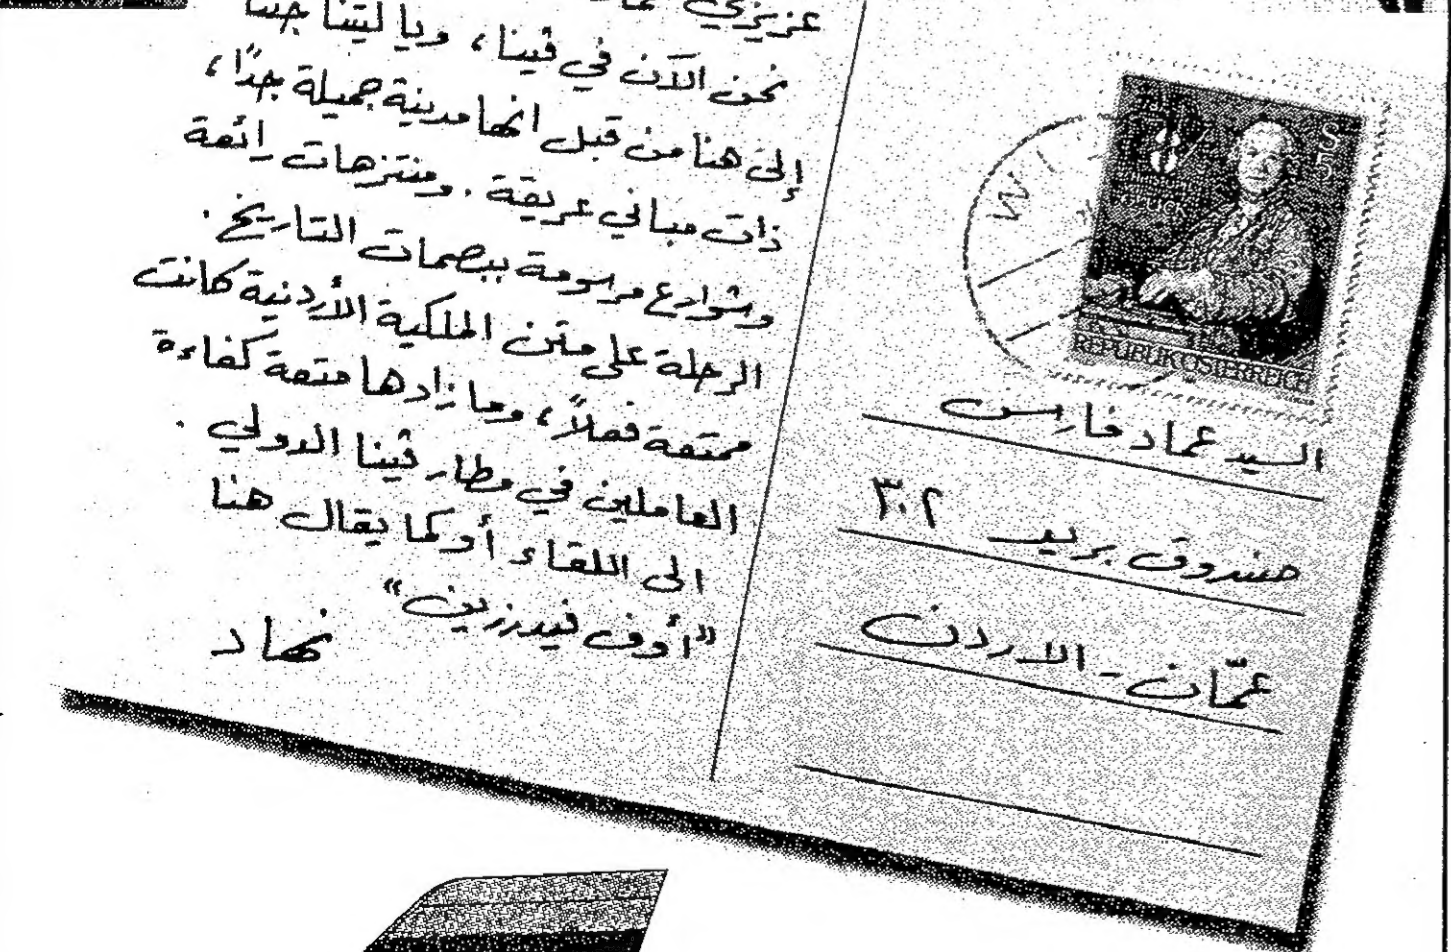 عزيزي
نحن الآن في ڤينا، ويا ليتنا جئنا
إلى هنا من قبل انها مدينة جميلة جدًا،
ذات مباني عريقة. ومنتزهات رائعة
وشوارع مرسومة ببصمات التاريخ.
الرحلة على متن الملكية الأردنية كانت
ممتعة فعلاً، وما زادها متعة كفاءة
العاملين في مطار ڤينا الدولي.
الى اللقاء أو كما يقال هنا
"أوف فيدرزين"
نهاد
S
5
WI
GLUCK
REPUBLIK ÖSTERREICH
السيد عماد فارس
صندوق بريد ٣٠٢
عمّان - الاردن